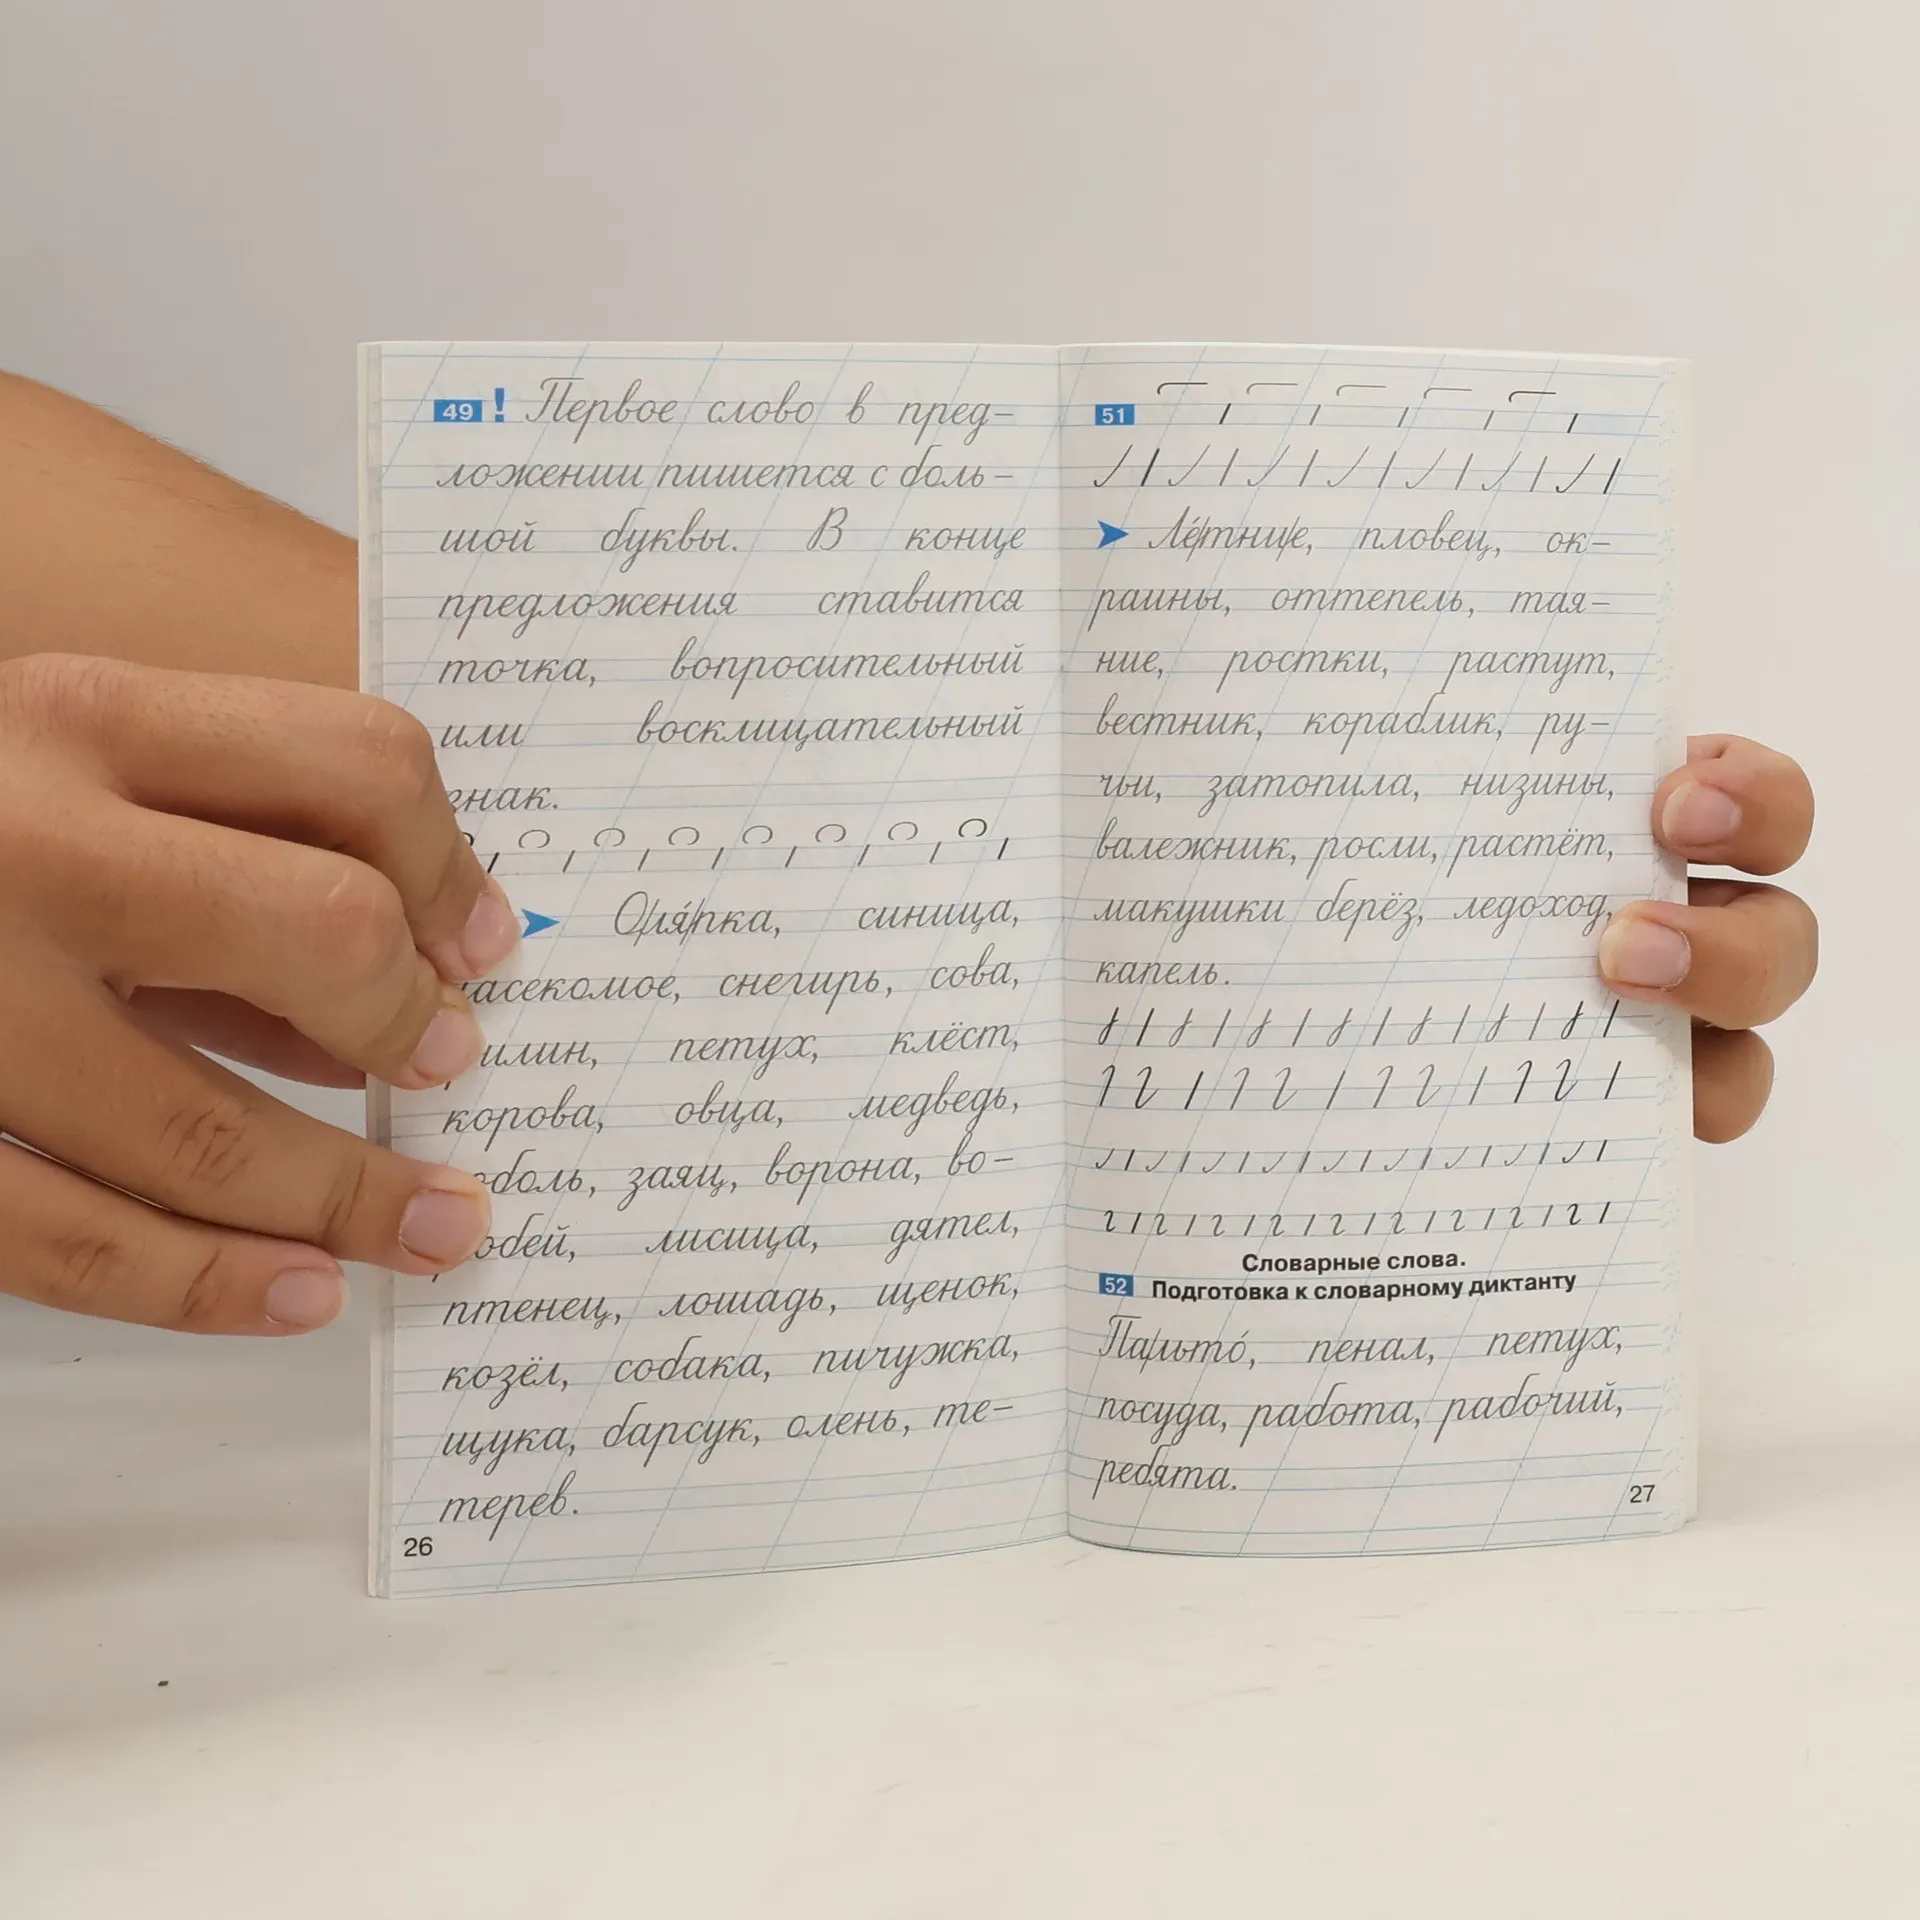 49 ! Первое слово в пред-
ложении пишется с боль-
шой буквы. В конце
предложения ставится
точка, вопросительный
или восклицательный
знак.
Оля́пка, синица,
насекомое, снегирь, сова,
филин, петух, клёст,
корова, овца, медведь,
соболь, заяц, ворона, во-
робей, лисица, дятел,
птенец, лошадь, щенок,
козёл, собака, пичужка,
щука, барсук, олень, те-
терев.
26
51
Ле́тние, пловец, ок-
раины, оттепель, тая-
ние, ростки, растут,
вестник, кораблик, ру-
чьи, затопила, низины,
валежник, росли, растёт,
макушки берёз, ледоход,
капель.
Словарные слова.
52 Подготовка к словарному диктанту
Пальто́, пенал, петух,
посуда, работа, рабочий,
ребята.
27